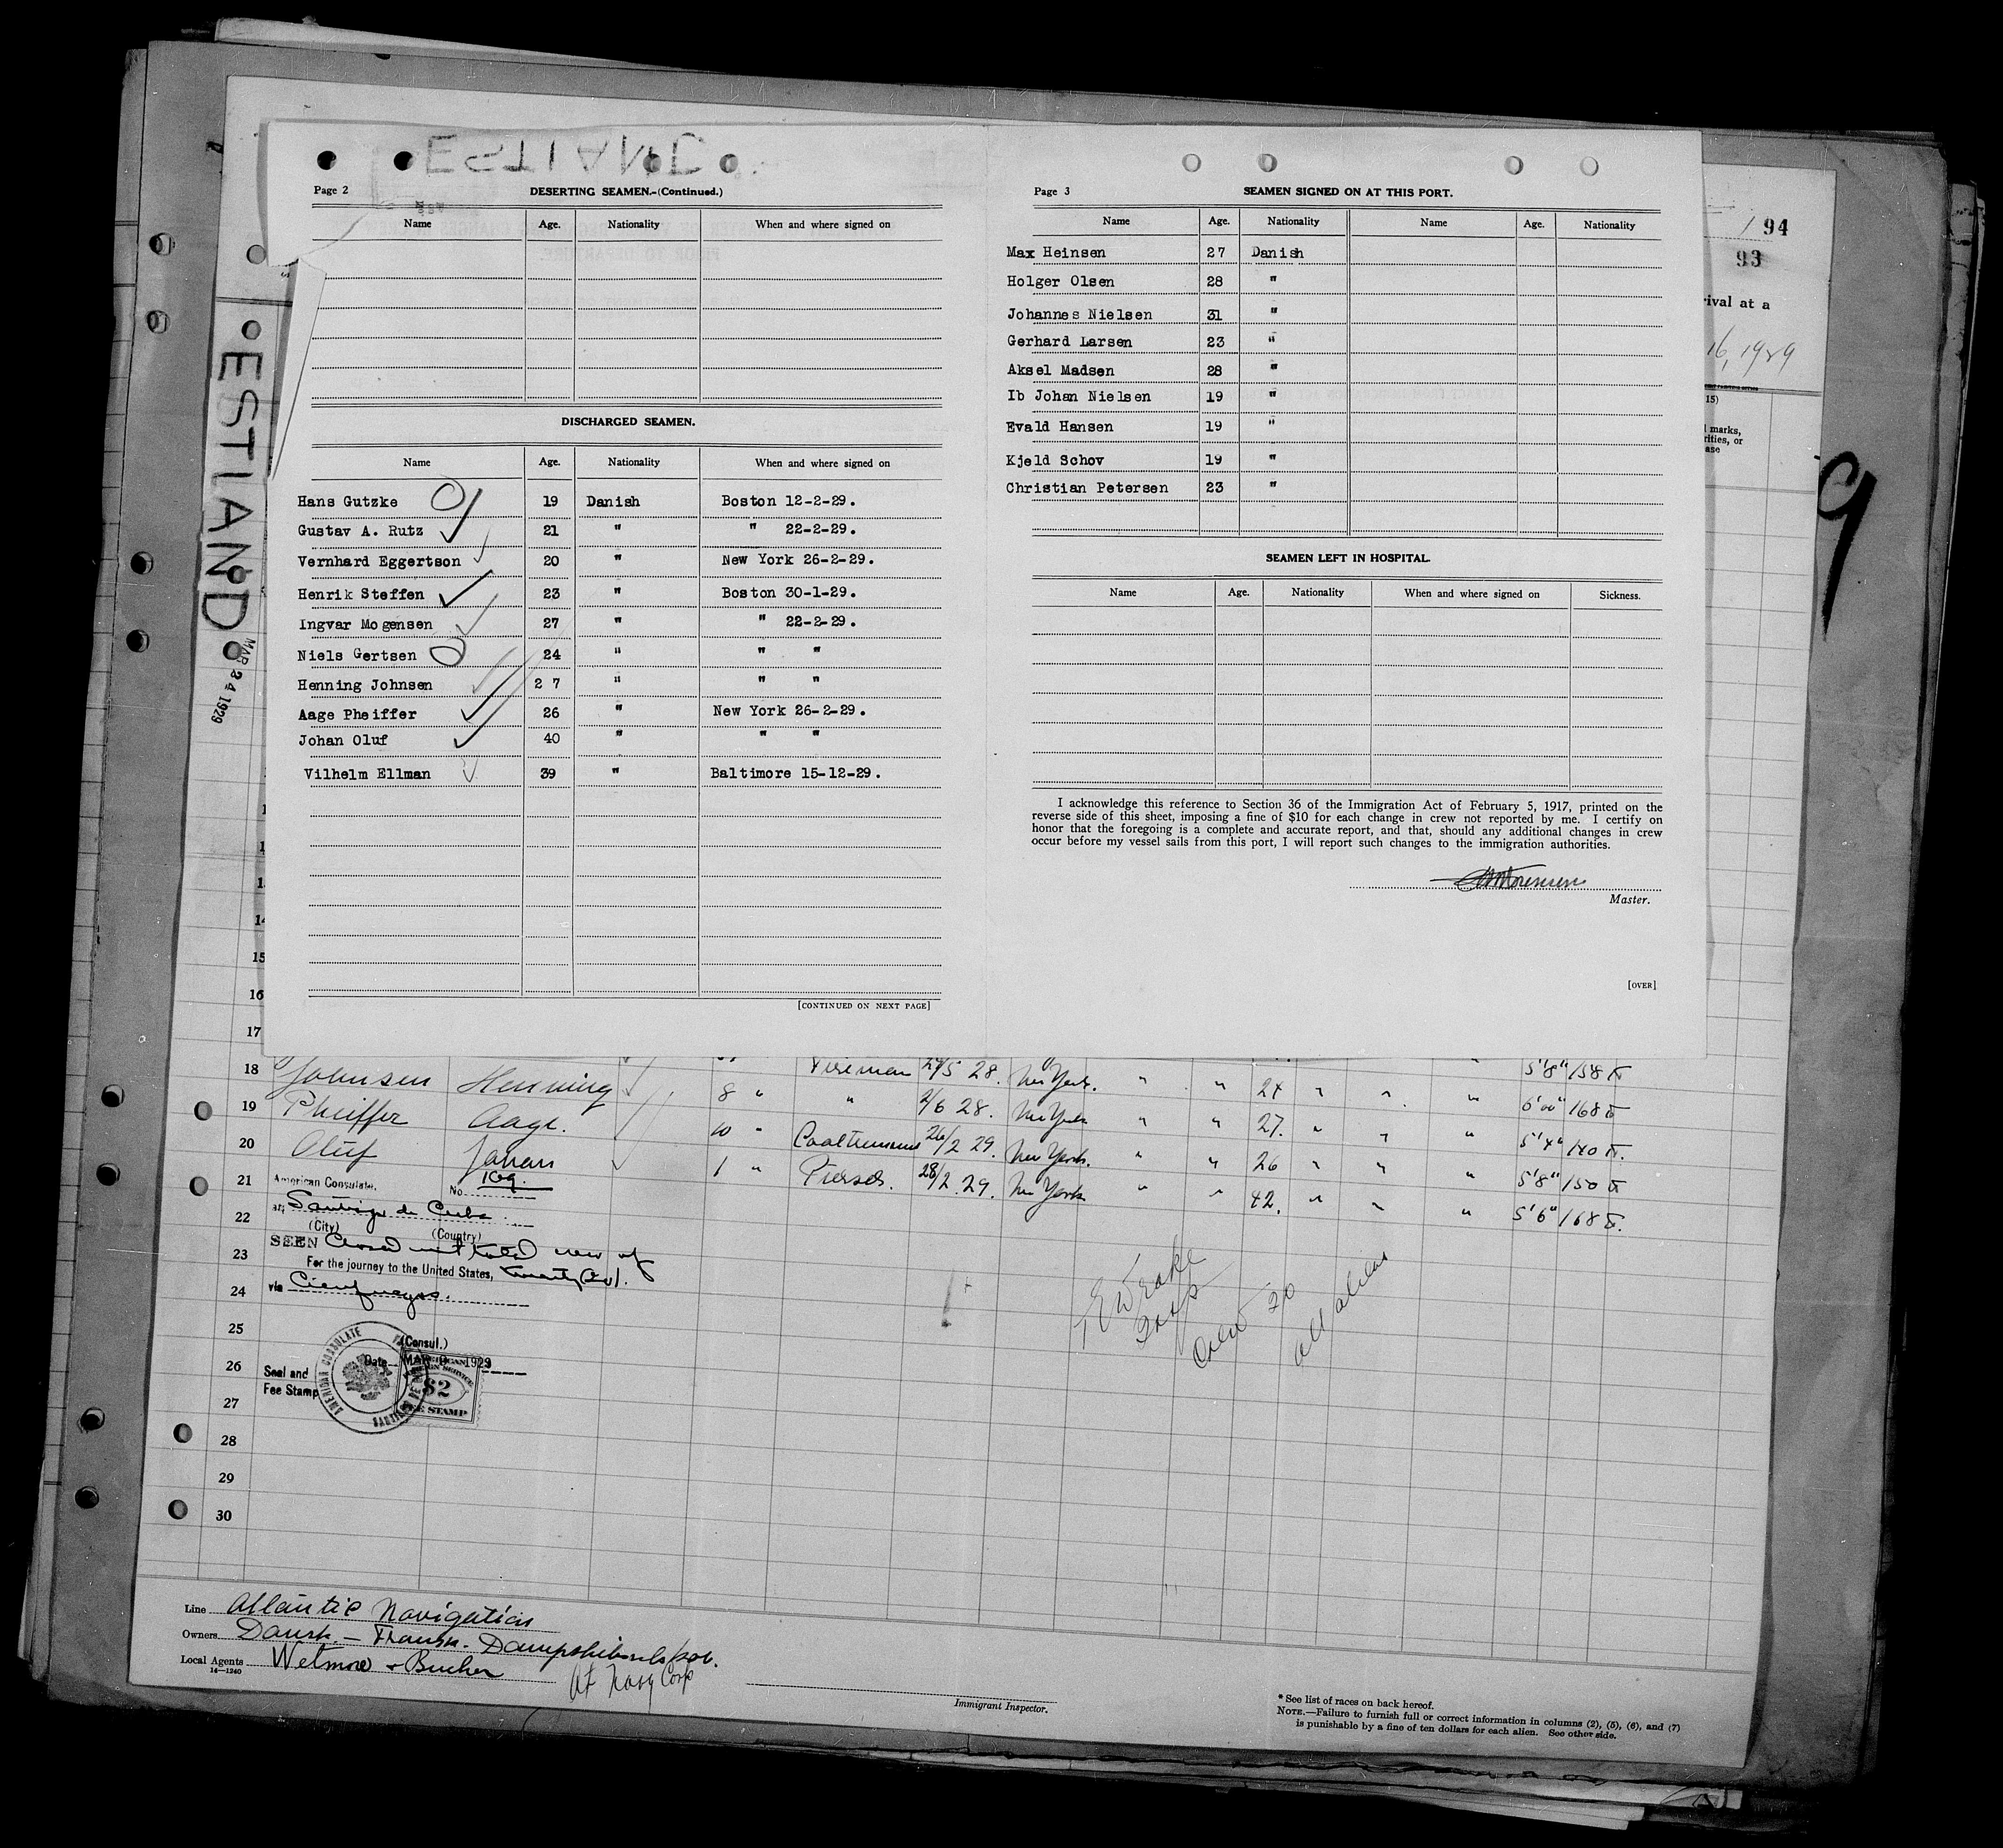 ESTLAND
Page 2 DESERTING SEAMEN.-(Continued.)
Name Age. Nationality When and where signed on
DISCHARGED SEAMEN.
Name Age. Nationality When and where signed on
Hans Gutzke 19 Danish Boston 12-2-29.
Gustav A. Rutz 21 " " 22-2-29.
Vernhard Eggertson 20 " New York 26-2-29.
Henrik Steffen 23 " Boston 30-1-29.
Ingvar Mogensen 27 " " 22-2-29.
Niels Gertsen 24 " " "
Henning Johnsen 2 7 " " "
Aage Pheiffer 26 " New York 26-2-29.
Johan Oluf 40 " " "
Vilhelm Ellman 39 " Baltimore 15-12-29.
[CONTINUED ON NEXT PAGE]
Page 3 SEAMEN SIGNED ON AT THIS PORT.
Name Age. Nationality Name Age. Nationality
Max Heinsen 27 Danish
Holger Olsen 28 "
Johannes Nielsen 31 "
Gerhard Larsen 23 "
Aksel Madsen 28 "
Ib Johan Nielsen 19 "
Evald Hansen 19 "
Kjeld Schov 19 "
Christian Petersen 23 "
SEAMEN LEFT IN HOSPITAL.
Name Age. Nationality When and where signed on Sickness.
I acknowledge this reference to Section 36 of the Immigration Act of February 5, 1917, printed on the
reverse side of this sheet, imposing a fine of $10 for each change in crew not reported by me. I certify on
honor that the foregoing is a complete and accurate report, and that, should any additional changes in crew
occur before my vessel sails from this port, I will report such changes to the immigration authorities.
Master.
[OVER]
1 94
93
ival at a
16, 1929
15)
marks,
rities, or
ase
9
ESTLAND
MAR 24 1929
15
16
17
18 Johnsen Henning 8 " Fireman 29/5 28. New York. " " 24 " " " 5'8" 158
19 Pheiffer Aage. " 2/6 28. New York " " 27. " " " 6'00" 168
20 Oluf Johan 10 " 26/2 29. New York. " " 26 " " " 5'4" 140
21 1 " 28/2 29. New York " " 42. " " " 5'8" 150
5'6" 168
American Consulate,
No. 169
22 at Santiago de Cuba
(City) (Country)
23 SEEN Closed with total crew of
For the journey to the United States, twenty (20).
24 via Cienfuegos.
25
(Consul.)
26 Date MAR 1929
Seal and
Fee Stamp
AMERICAN CONSULATE
$2
FEE STAMP
27
28
29
30
all aliens
Line Atlantic Navigation
Owners Dansk - Fransk. Dampskibsselskab.
Local Agents Wetmore + Bucher
At Navg Corp
14-1240
Immigrant Inspector.
* See list of races on back hereof.
NOTE.—Failure to furnish full or correct information in columns (2), (5), (6), and (7)
is punishable by a fine of ten dollars for each alien. See other side.